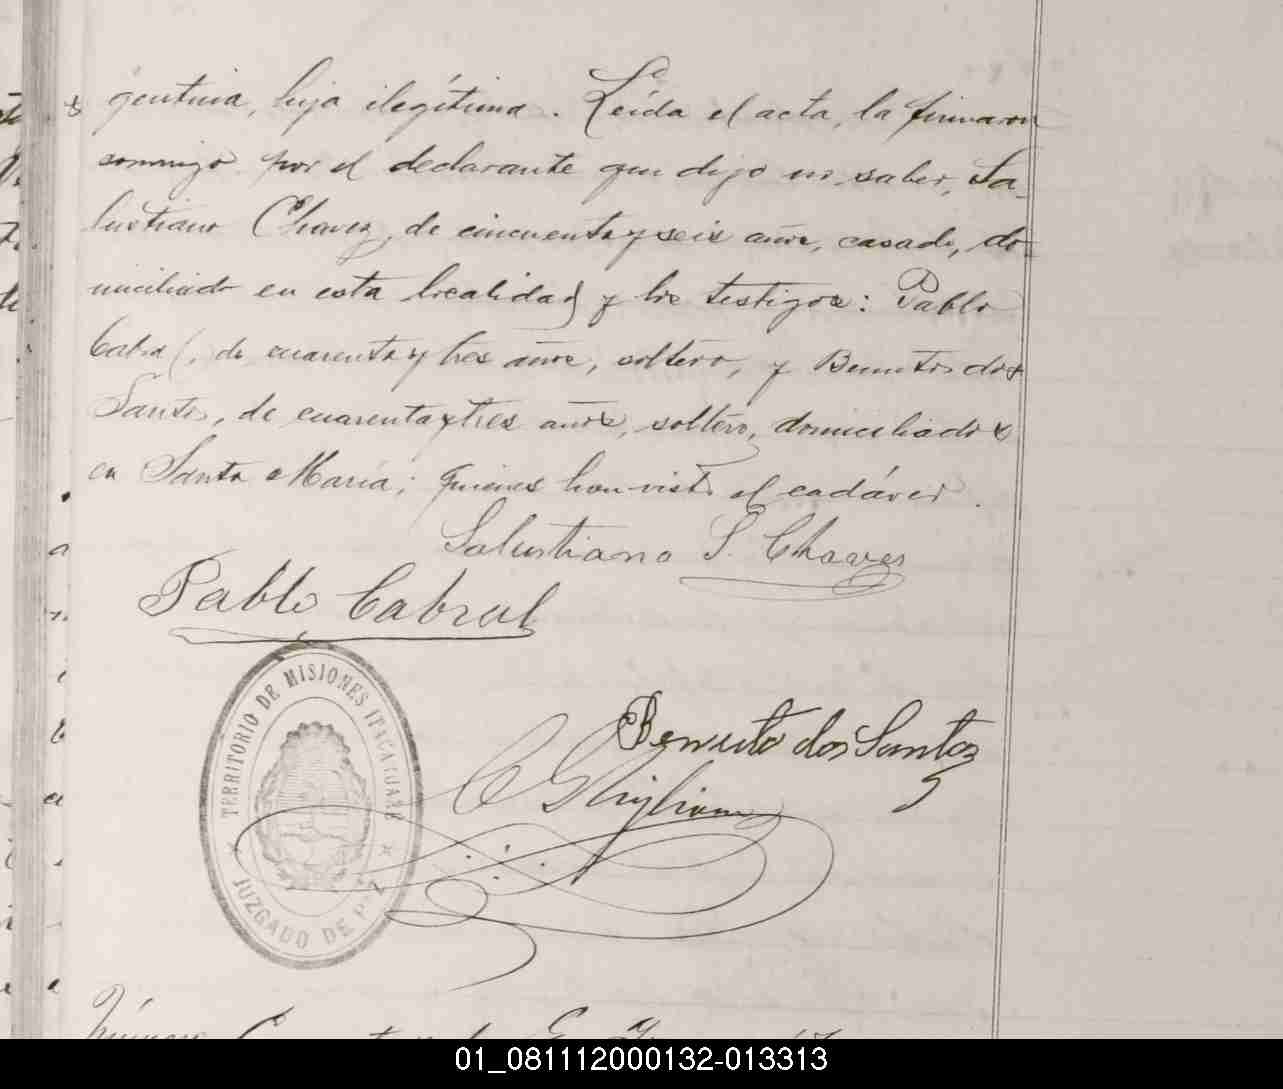 gentina, hija ilegítima. Leída el acta, la firmaron
conmigo por el declarante que dijo no saber, Sa-
lustiano Chavez, de cincuenta y seis años, casado, do-
miciliado en esta localidad y los testigos: Pablo
Cabral, de cuarenta y tres años, soltero, y Benito dos
Santos, de cuarenta y tres años, soltero, domiciliados
en Santa María; quienes han visto el cadáver.
Salustiano S. Chaves
Pablo Cabral
TERRITORIO DE MISIONES ITACARUARE
JUZGADO DE PAZ
Benuto dos Santos
Número
01_081112000132-013313